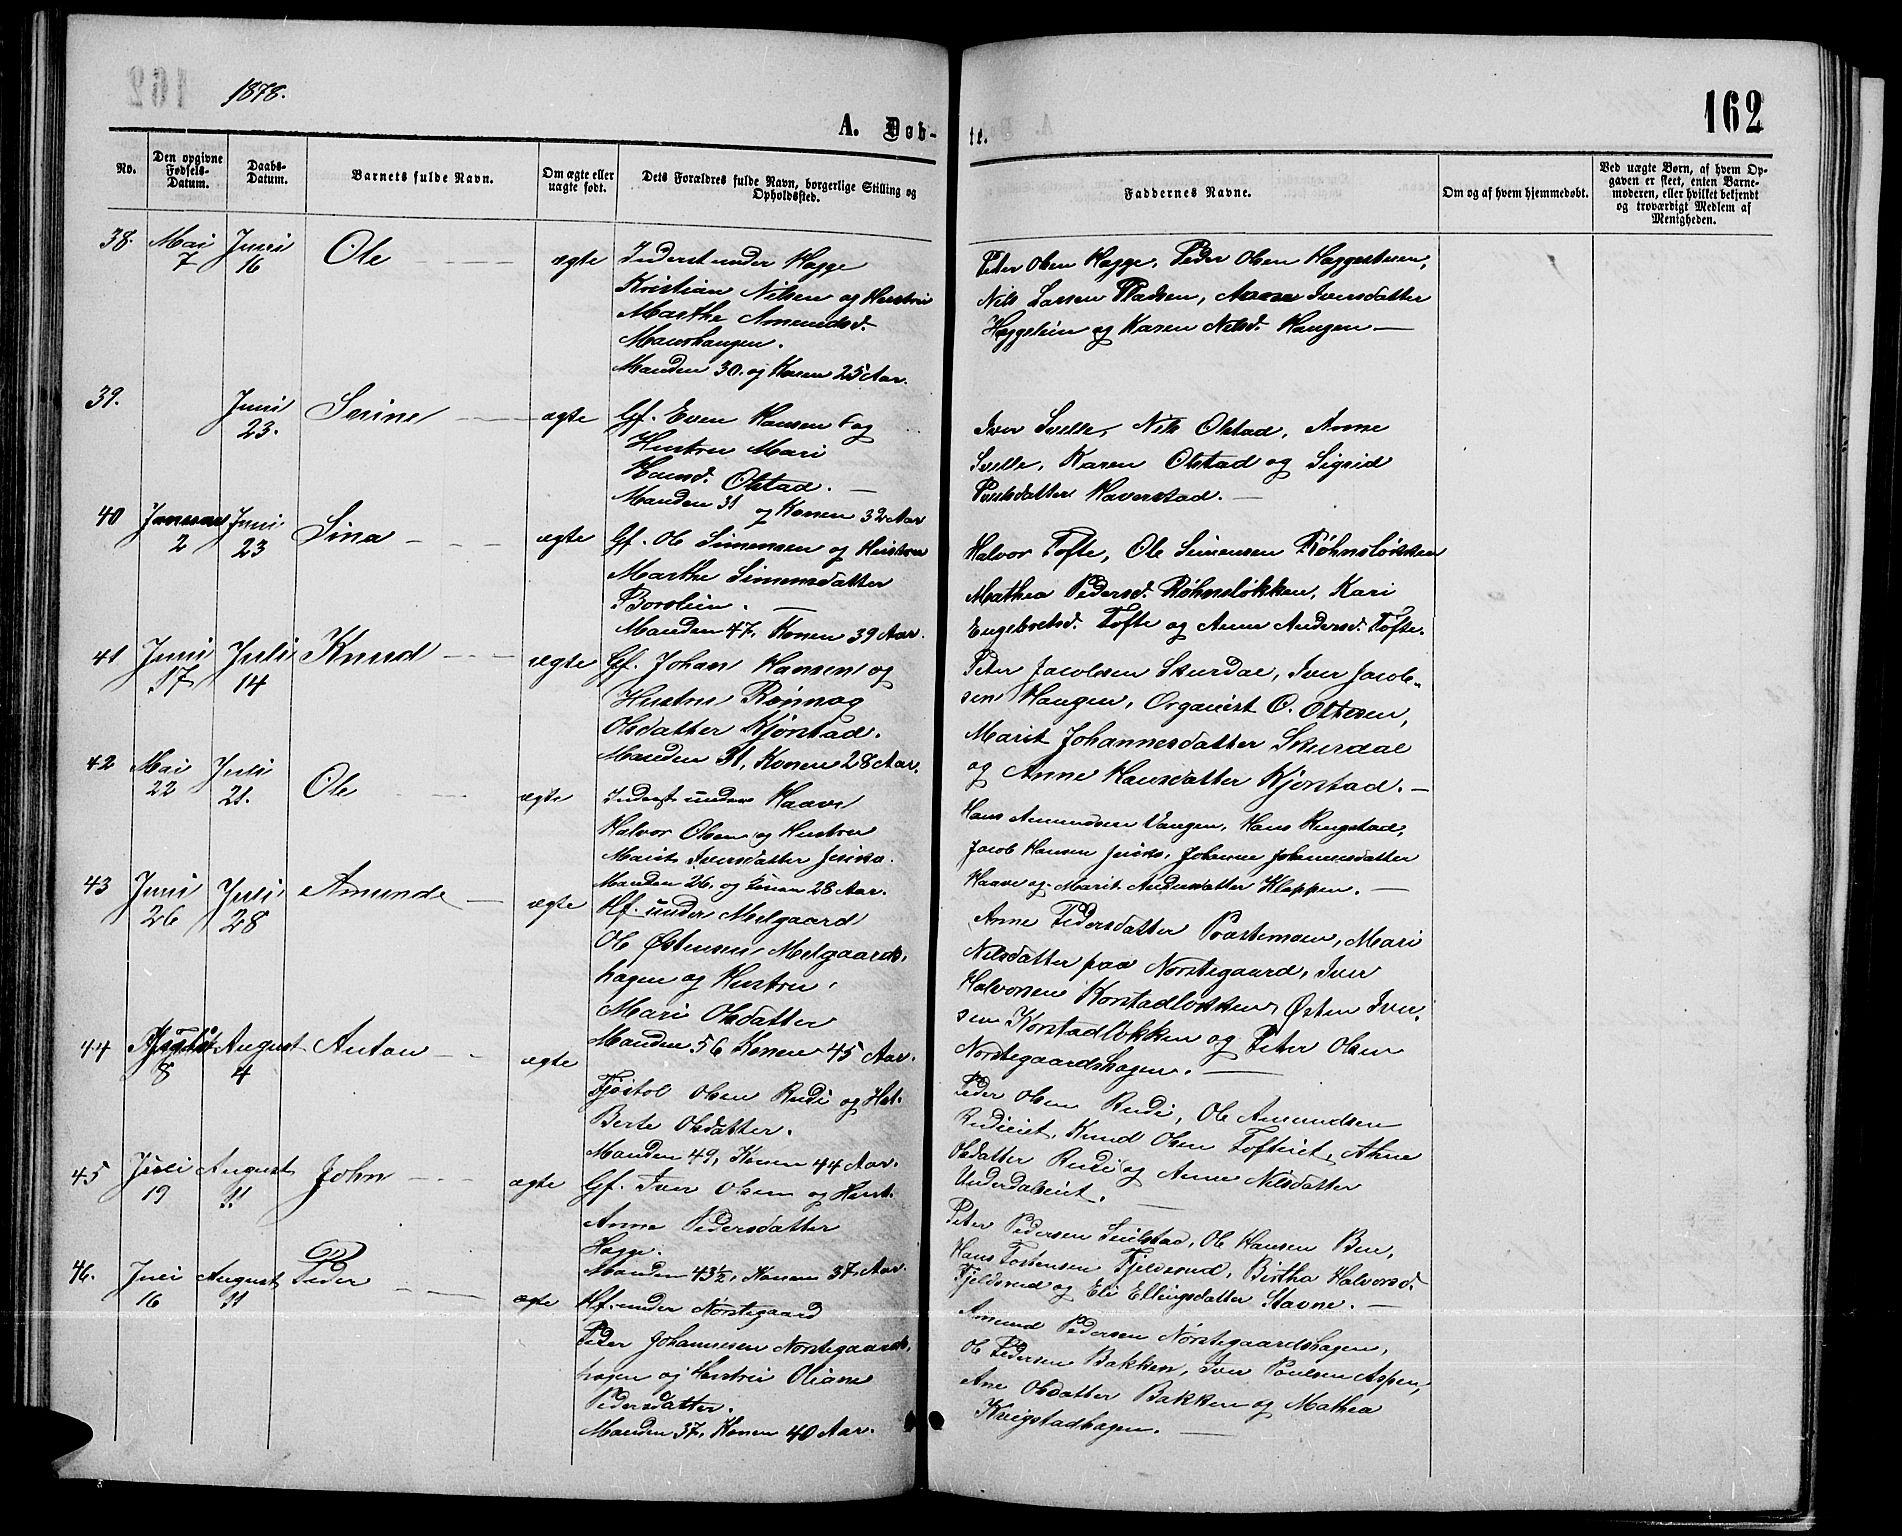 1878.
162
A. Døb-
te.
No.
Den opgivne Fødsels-Datum.
Daabs-Datum.
Barnets fulde Navn.
Om ægte eller uægte født.
Dets Forældres fulde Navn, borgerlige Stilling og Opholdssted.
Faddernes Navne.
Om og af hvem hjemmedøbt.
Ved uægte Børn, af hvem Opgaven er skeet, enten Barnemoderen, eller hvilket bekjendt og troværdigt Medlem af Menigheden.
38. Mai 7 Juni 16 Ole ægte
Inderst under Hagge
Kristian Nilsen og Hustru
Marthe Amundsd.
Manden 30. og Konen 25 Aar.
Peter Olsen Hagge, Peder Olsen Haggestuen,
Nils Larsen Pladsen, Anne Iversdatter
og Karen Nilsd. Haugen —
39. Juni 23. Serine ægte
Gf. Even Hansen og
Hustru Mari
Hansd. Olstad. —
Manden 31 og Konen 32 Aar
Iver Svelle, Nils Olstad, Anne
Svelle, Karen Olstad og Sigrid
Poulsdatter Haverstad. —
40 Januar 2 Juni 23 Sina ægte
Gf. Ole Simensen og Hustru
Marthe Simensdatter
Manden 47, Konen 39 Aar.
Halvor Tofte, Ole Simensen Røhnsløkken
Mathea Pedersd. Røhnsløkken, Kari
Engebretsd. Tofte og Anne Andersd. Tofte.
41 Juni 17 Juli 14 Knud ægte
Gf. Johan Hansen og
Hustru Rønnog
Olsdatter Kjørstad.
Manden 31, Konen 28 Aar.
Peter Jacobsen Skurdal, Iver Jacob-
sen Haugen, Organist O. Ottesen,
Marit Johannesdatter Skurdal
og Anne Hansdatter Kjørstad. —
42 Mai 22 Juli 21. Ole ægte
Inderst under Haave
Halvor Olsen og Hustru
Marit Iversdatter
Manden 26, og Konen 28 Aar.
Hans Amundsen Vangen, Hans Ringstad,
Jacob Hansen Johanne Johannesdatter
Haave og Marit Andersdatter Kleppen. —
43 Juni 26 Juli 28 Amund ægte
Hf. under Melgaard
Ole Østensen, Melgaards-
hagen og Hustru,
Mari Olsdatter
Manden 56 Konen 45 Aar.
Anne Pedersdatter Præstemoen, Mari
Nilsdatter paa Norstegaard, Iver
Halvorsen Korstadløkken, Østen Iver-
sen Korstadløkken og Peter Olsen
Norstegaardshagen. —
44 8 August 4 Anton ægte
Tjøstol Olsen Rudi og Hst.
Berte Olsdatter.
Manden 49, Konen 44 Aar.
Peder Olsen Rudi, Ole Amundsen
Rudieiet, Knud Olsen Tofteiet, Ahne
Olsdatter Rudi og Anne Nilsdatter
Underdaleiet. —
45 Juli 19 August 11 John ægte
Gf. Iver Olsen og Hust.
Anne Pedersdatter
Hagge.
Manden 43½, Konen 37 Aar.
Peter Pedersen Ole Hansen Bue,
Hans Tostensen Fjeldsrud, Birthe Halvorsd.
Fjeldsrud og Eli Ellingsdatter Stavne. —
46. Juli 16 August 11 Peder ægte
Hf. under Norstegaard
Peder Johannesen Norstegaards-
hagen og Hustru Oliane
Pedersdatter.
Manden 37, Konen 40 Aar.
Amund Pedersen Nørstegaardshagen,
Ole Pedersen Bakken, Iver Poulsen Aspen,
Ane Olsdatter Bakken og Mathea
Kringstadhagen. —